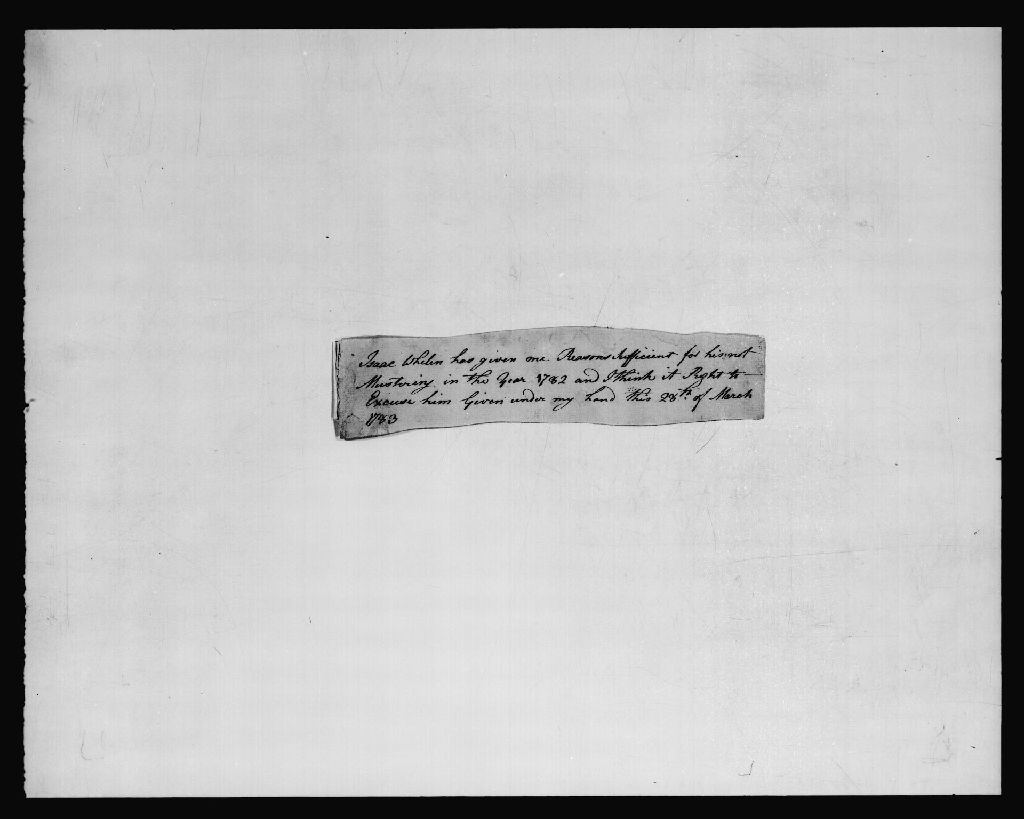 Isaac Whelen has given me Reasons Sufficient for his not
Mustering in the Year 1782 and I think it Right to
Excuse him Given under my hand this 28th of March
1783